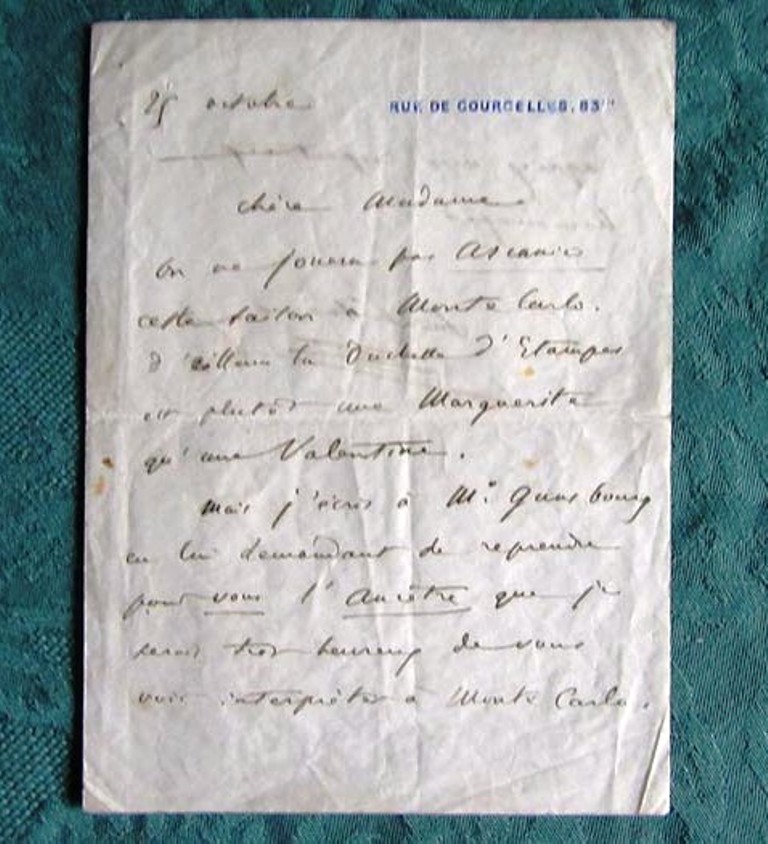 25 octobre
RUE DE COURCELLES, 83 bis
chère Madame
On ne jouera pas Ascanio
cette saison à Monte Carlo.
D'ailleurs la Duchesse d'Etampes
est plutôt une Marguerite
qu'une Valentine.
Mais j'écris à Mr. Gunsbourg
en lui demandant de reprendre
pour vous l'Ancêtre que je
serais très heureux de vous
voir interpréter à Monte Carlo.